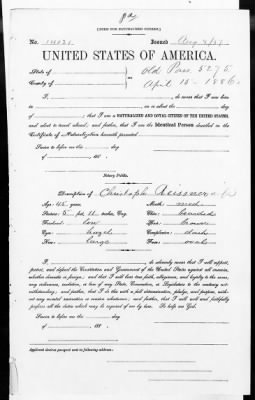 [FORM FOR NATURALIZED CITIZEN.]
No. Issued Aug
UNITED STATES OF AMERICA.
State of Old Pass. 5275
County of April 15 - 1886
I, , do swear that I was born
in , on or about the day
of ; that I am a NATURALIZED AND LOYAL CITIZEN OF THE UNITED STATES,
and about to travel abroad; and further, that I am the Identical Person described in the
Certificate of Naturalization herewith presented
Sworn to before me this day
of , 188 .
Notary Public.
Description of Christoph Reissner
Age: 45 years. Mouth: med
Stature: 5 feet, 11 inches, Eng. Chin: bearded
Forehead: low Hair: brown
Eyes: Complexion: dark
Nose: large Face: oval
I, , do solemnly swear that I will support,
protect, and defend the Constitution and Government of the United States against all enemies,
whether domestic or foreign; and that I will bear true faith, allegiance, and loyalty to the same,
any ordinance, resolution, or law of any State, Convention, or Legislature to the contrary not-
withstanding; and further, that I do this with a full determination, pledge, and purpose, with-
out any mental reservation or evasion whatsoever; and further, that I will well and faithfully
perform all the duties which may be required of me by law: So help me God.
Sworn to before me this day
of , 188 .
Applicant desires passport sent to following address: